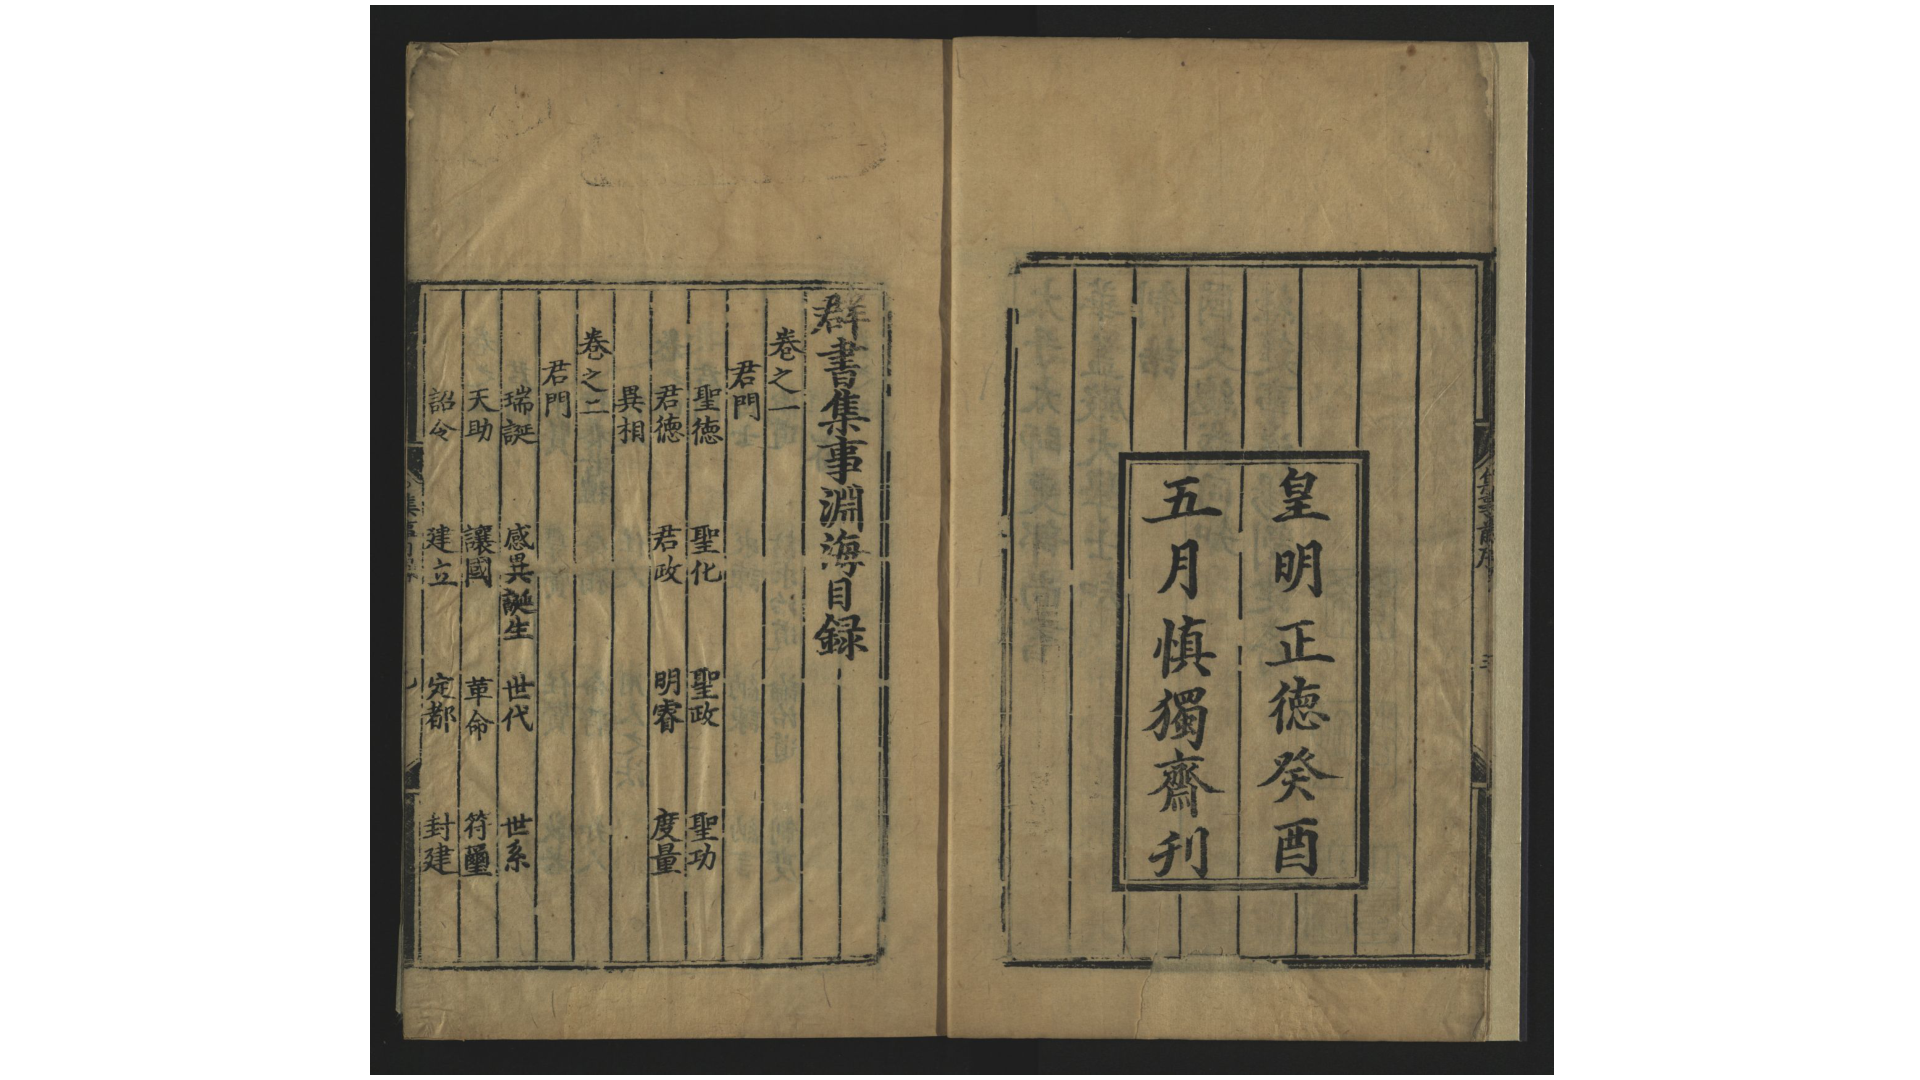 皇明正徳癸酉
五月慎獨齋刊
群書集事淵海目録
卷之一
君門
聖徳 聖化 聖政 聖功
君徳 君政 明睿 度量
異相
卷之二
君門
瑞誕 感異誕生 世代 世系
天助 讓國 革命 符璽
詔令 建立 定都 封建